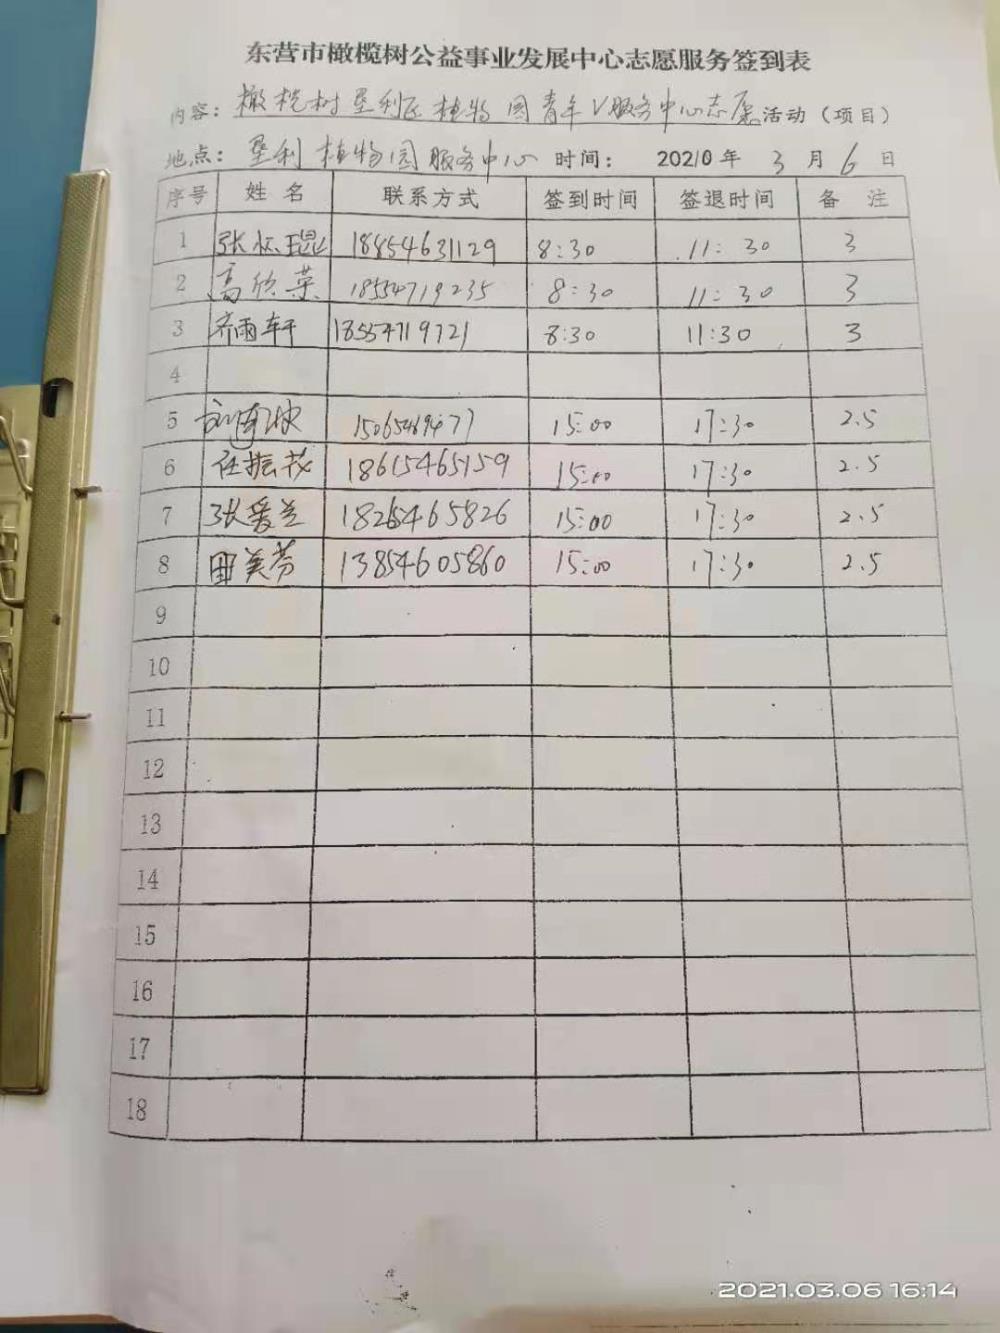 东营市橄榄树公益事业发展中心志愿服务签到表
内容：橄榄树垦利区植物园青年V服务中心志愿活动（项目）
地点：垦利植物园服务中心 时间：2021年 3 月 6 日
序号 姓 名 联系方式 签到时间 签退时间 备 注
1 张怀琨 18854631129 8:30 11:30 3
2 高欣荣 18554719235 8:30 11:30 3
3 齐雨轩 18554719721 8:30 11:30 3
4
5 15065469477 15:00 17:30 2.5
6 任振茂 18615465159 15:00 17:30 2.5
7 张爱兰 18265465826 15:00 17:30 2.5
8 田美芬 13854605860 15:00 17:30 2.5
9
10
11
12
13
14
15
16
17
18
2021.03.06 16:14